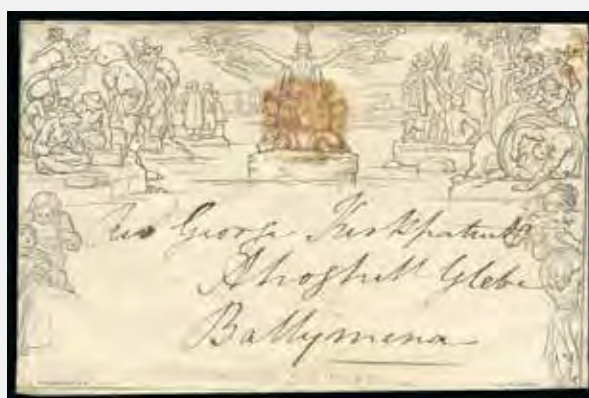 Rev George Kirkpatrick
Ahoghill Glebe
Ballymena